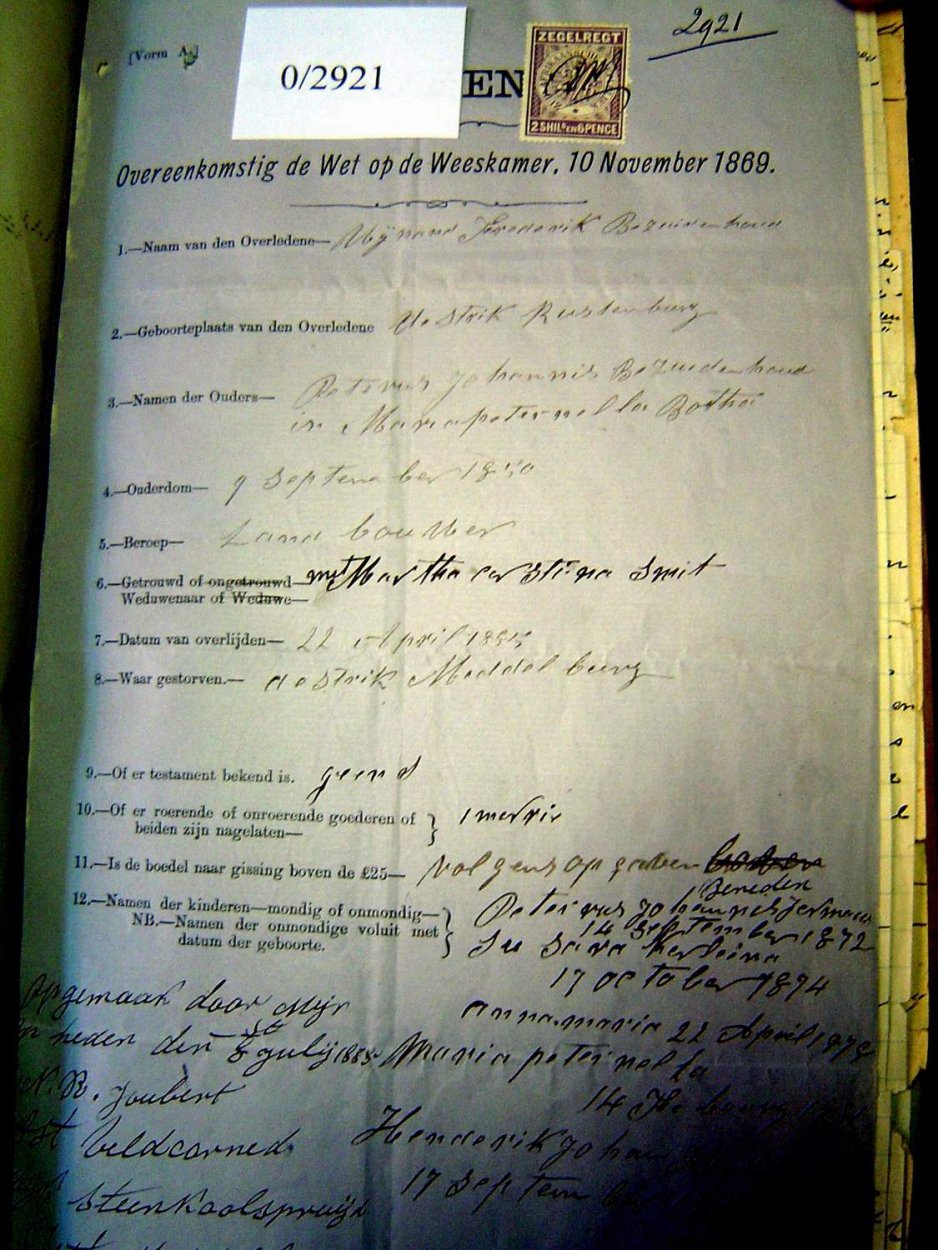 [Vorm A.]
0/2921
EN
ZEGELREGT
2 SHILS EN 6 PENCE
2921
Overeenkomstig de Wet op de Weeskamer, 10 November 1869.
1.—Naam van den Overledene— Wijnand Frederik Bezuidenhoud
2.—Geboorteplaats van den Overledene destrik Rustenburg
3.—Namen der Ouders— Petervus Johannis Bezuidenhoud
in Maria peternella Botha
4.—Ouderdom— 9 September 1850
5.—Beroep— Land bouwer
6.—Getrouwd of ongetrouwd— met Martha cerstina Smit
Weduwenaar of Weduwe—
7.—Datum van overlijden— 22 April
8.—Waar gestorven.— destrik Meddelburg
9.—Of er testament bekend is. geend
10.—Of er roerende of onroerende goederen of } 1 merrie
beiden zijn nagelaten—
11.—Is de boedel naar gissing boven de £25— volgens op gaven
beneden
12.—Namen der kinderen—mondig of onmondig— } Petervus Johannis
14 September 1872
NB.—Namen der onmondige voluit met
datum der geboorte.
Sara
17 october 1874
anna maria 22 April
Maria peternella
14
Henderik Joh
17 septem
opgemaak door Mijn
heden den 8 Julij 1885
N. R. Joubert
Veldcorned
Steenkoolspruijt